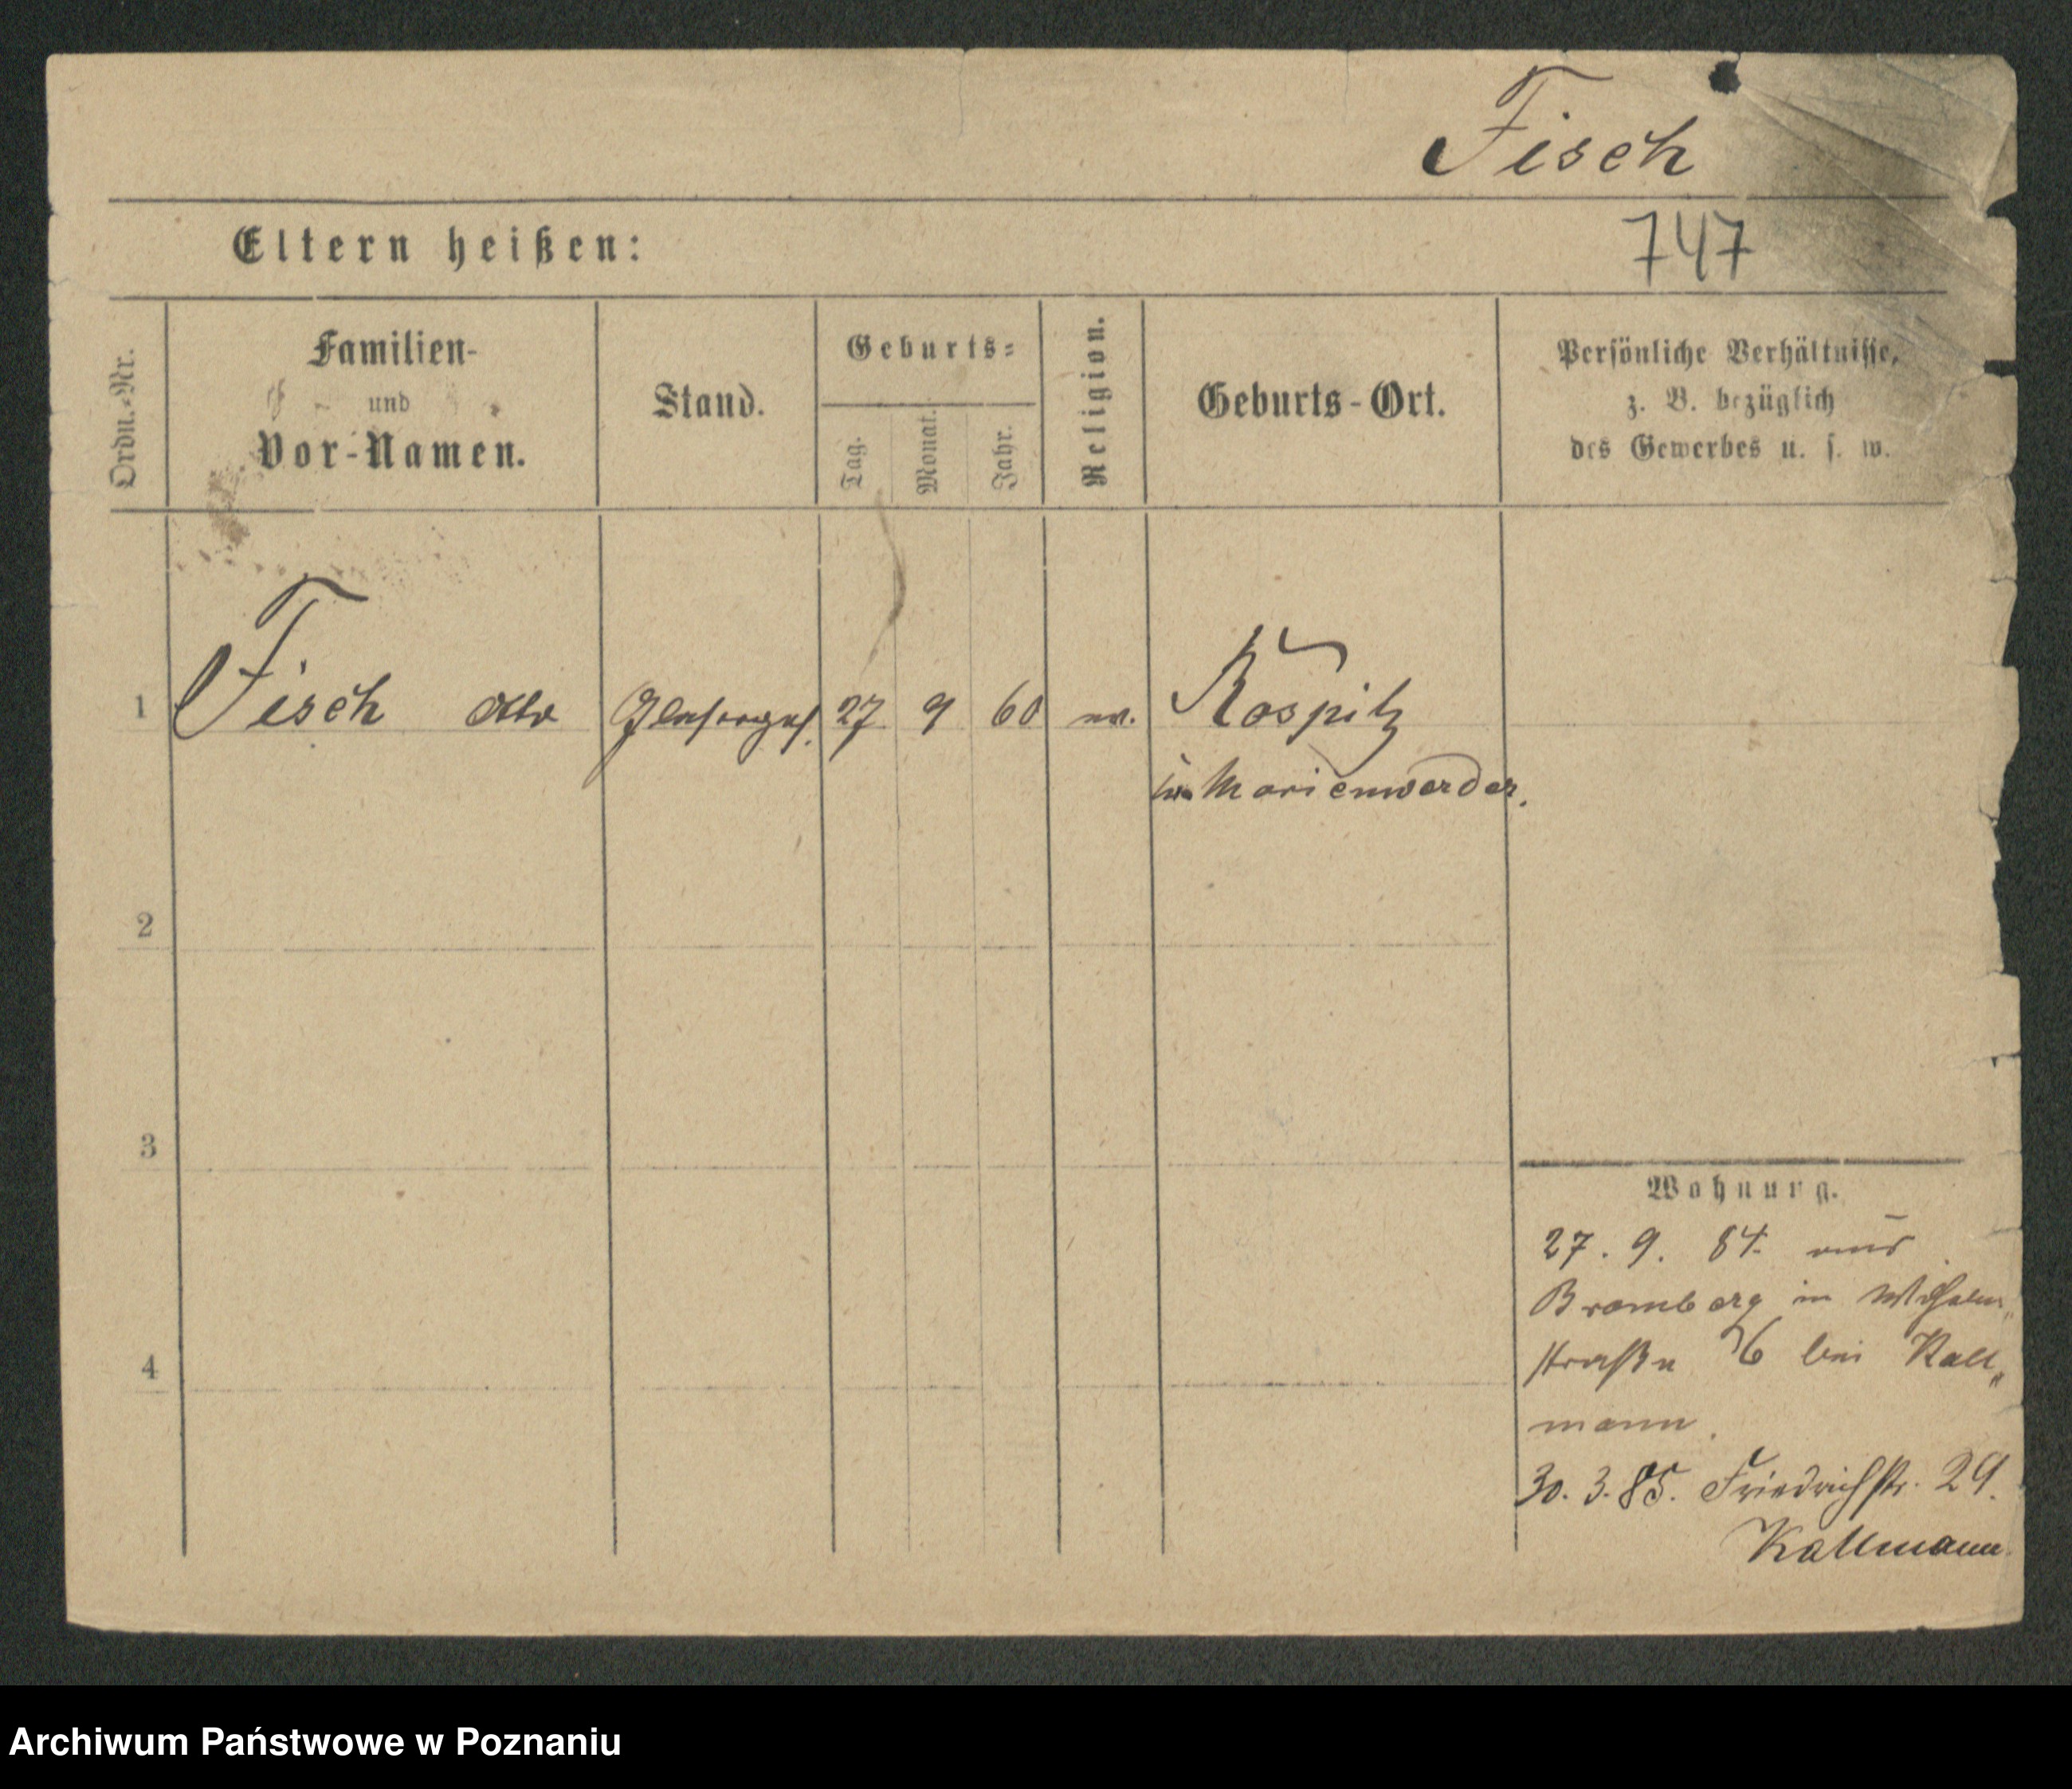 Fisch
Eltern heißen:
747
Ordn.-Nr.
Familien-
und
Vor-Namen.
Stand.
Geburts-
Tag.
Monat.
Jahr.
Religion.
Geburts-Ort.
Persönliche Verhältnisse,
z. B. bezüglich
des Gewerbes u. s. w.
1 Fisch Otto Glaserges. 27 9 60 ev. Rospitz
Marienwerder.
2
3
4
Wohnung.
27. 9. 84. aus
Bromberg in Wilhelm„
straße 26 bei Kall„
mann.
30. 3. 85. Friedrichstr. 29.
Kallmann.
Archiwum Państwowe w Poznaniu